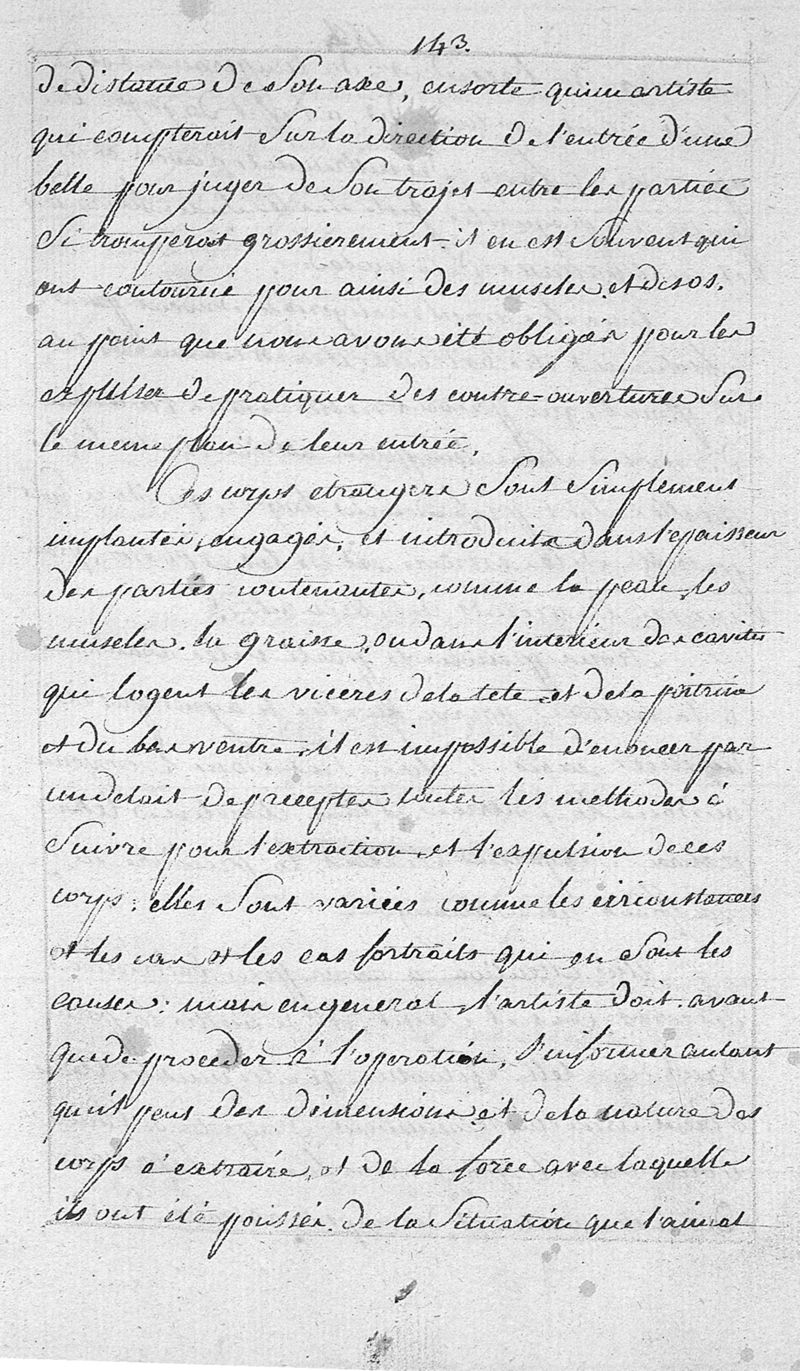 143.
de distance de Son axe, ensorte qu'un artiste
qui compteroit Sur la direction de l'entrée d'une
belle pour juger de Son trajet entre les parties
Si tromperoit grossierement. il en est Souvent qui
ont contourné pour ainsi des muscles et des os.
au point que nous avons été obligés pour les
expulser de pratiquer des contre-ouvertures Sur
le meme plan de leur entrée.
Ces corps etrangers Sont Simplement
implantés, engagés, et introduits dans l'epaisseur
des parties contenantes, comme la peau, les
muscles, la graisse, ou dans l'interieur des cavites
qui logent les viceres de la tete et de la poitrine
et du bas ventre, il est impossible d'enoncer par
un detait de preceptes toutes les methodes à
Suivre pour l'extraction, et l'expulsion de ces
corps; elles Sont variées comme les circonstances
et les cas et les cas fortraits qui en Sont les
causes: mais en general, l'artiste doit avant
que de proceder à l'operation, S'informer autant
qu'il peut des dimensions et de la nature des
corps à extraire, et de la force avec laquelle
ils ont été poussés, de la Situation que l'aimal